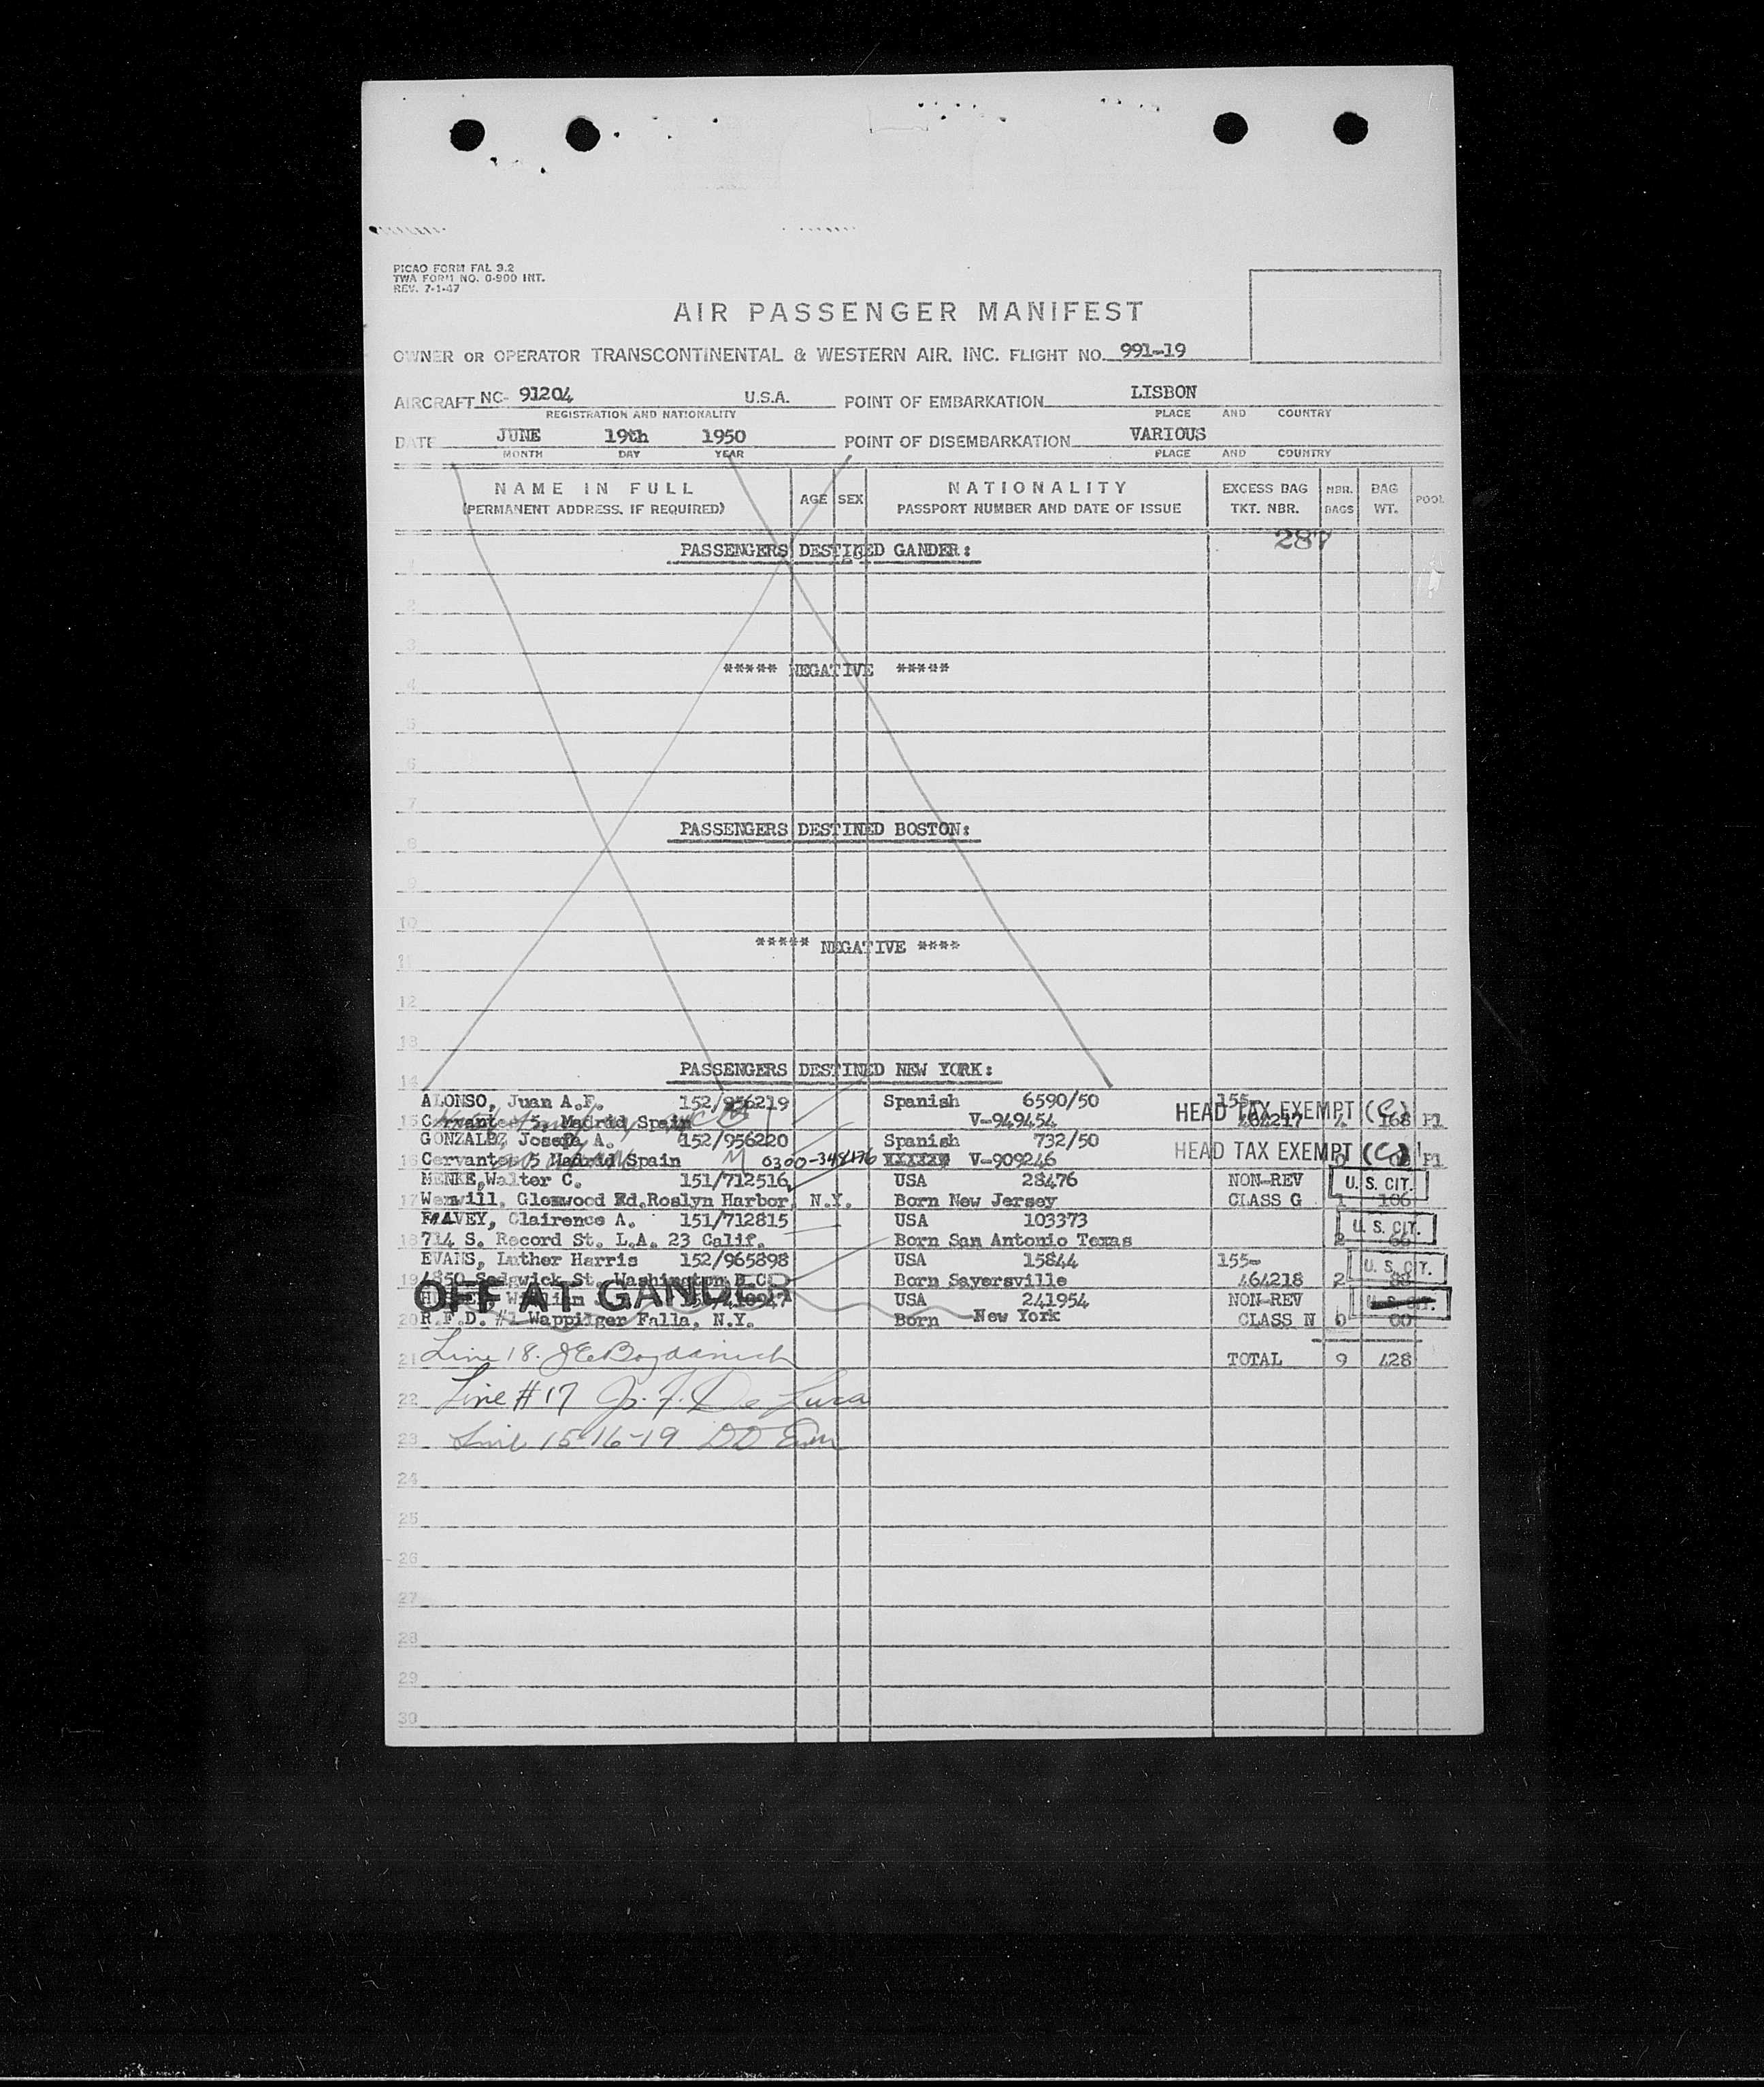 PICAO FORM FAL 3.2
TWA FORM NO. O-900 INT.
REV. 7-1-47
AIR PASSENGER MANIFEST
OWNER OR OPERATOR TRANSCONTINENTAL & WESTERN AIR, INC. FLIGHT NO. 991-19
AIRCRAFT NC- 91204 U.S.A. POINT OF EMBARKATION LISBON
REGISTRATION AND NATIONALITY PLACE AND COUNTRY
DATE JUNE 19th 1950 POINT OF DISEMBARKATION VARIOUS
MONTH DAY YEAR PLACE AND COUNTRY
NAME IN FULL AGE SEX NATIONALITY EXCESS BAG NBR. BAG POOL
(PERMANENT ADDRESS, IF REQUIRED) PASSPORT NUMBER AND DATE OF ISSUE TKT. NBR. BAGS WT.
287
PASSENGERS DESTINED GANDER:
1
2
3
***** NEGATIVE *****
4
5
6
7
PASSENGERS DESTINED BOSTON:
8
9
10
***** NEGATIVE ****
11
12
13
PASSENGERS DESTINED NEW YORK:
14
ALONSO, Juan A.F. 152/956219 Spanish 6590/50 155-
15 Cervantes 5, Madrid Spain V-949454 HEAD TAX EXEMPT (C) 464217 4 168 P1
GONZALEZ Josefa A. 152/956220 Spanish 732/50 HEAD TAX EXEMPT (C)
16 Cervantes 5 Madrid Spain M 0300-348176 XXXXXX V-909246 P1
MENKE, Walter C. 151/712516 USA 28476 NON-REV U. S. CIT.
17 Glenwood Rd. Roslyn Harbor, N.Y. Born New Jersey CLASS G 1 106
Clairence A. 151/712815 USA 103373 U. S. CIT.
18 714 S. Record St. L.A. 23 Calif. Born San Antonio Texas 2 66
EVANS, Luther Harris 152/965898 USA 15844 155- U. S. CIT.
19 4850 Sedgwick St. Washington D.C. Born Sayersville 464218 2 88
OFF AT GANDER
William USA 241954 NON-REV U. S. CIT.
20 R.F.D. #1 Wappinger Falls, N.Y. Born New York CLASS N 0 00
21 Line 18. J E Bogdanich TOTAL 9 428
22 Line #17 J. F. De Luca
23 Line 15-16-19 DD
24
25
26
27
28
29
30